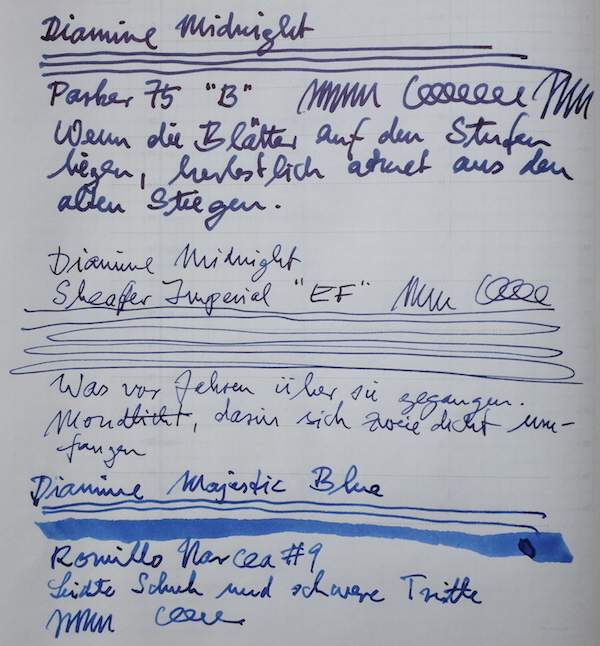 Diamine Midnight
Parker 75 "B"
Wenn die Blätter auf den Stufen
liegen, herbstlich atmet aus den
alten Stiegen.
Diamine Midnight
Sheaffer Imperial "EF"
Was vor Jahren über sie gegangen.
Mondlicht, darin sich zweie dicht um-
fangen
Diamine Majestic Blue
Romillo Narcea #9
Leichte Schuh und schwere Tritte